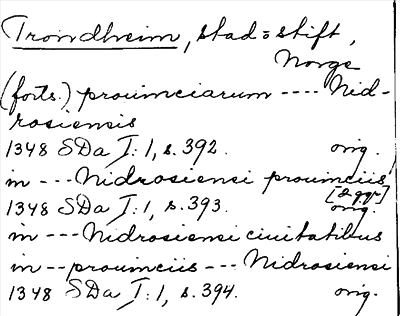 Trondheim, stad = stift,
Norge
(forts.) prouinciarum ---- Nid-
rosiensis
1348 SDa I:1, s. 392. orig.
in --- Nidrosiensi prouinciis
[2 ggr]
1348 SDa I:1, s. 393. orig.
in --- Nidrosiensi ciuitatibus
in -- prouinciis --- Nidrosiensi
1348 SDa I:1, s. 394. orig.